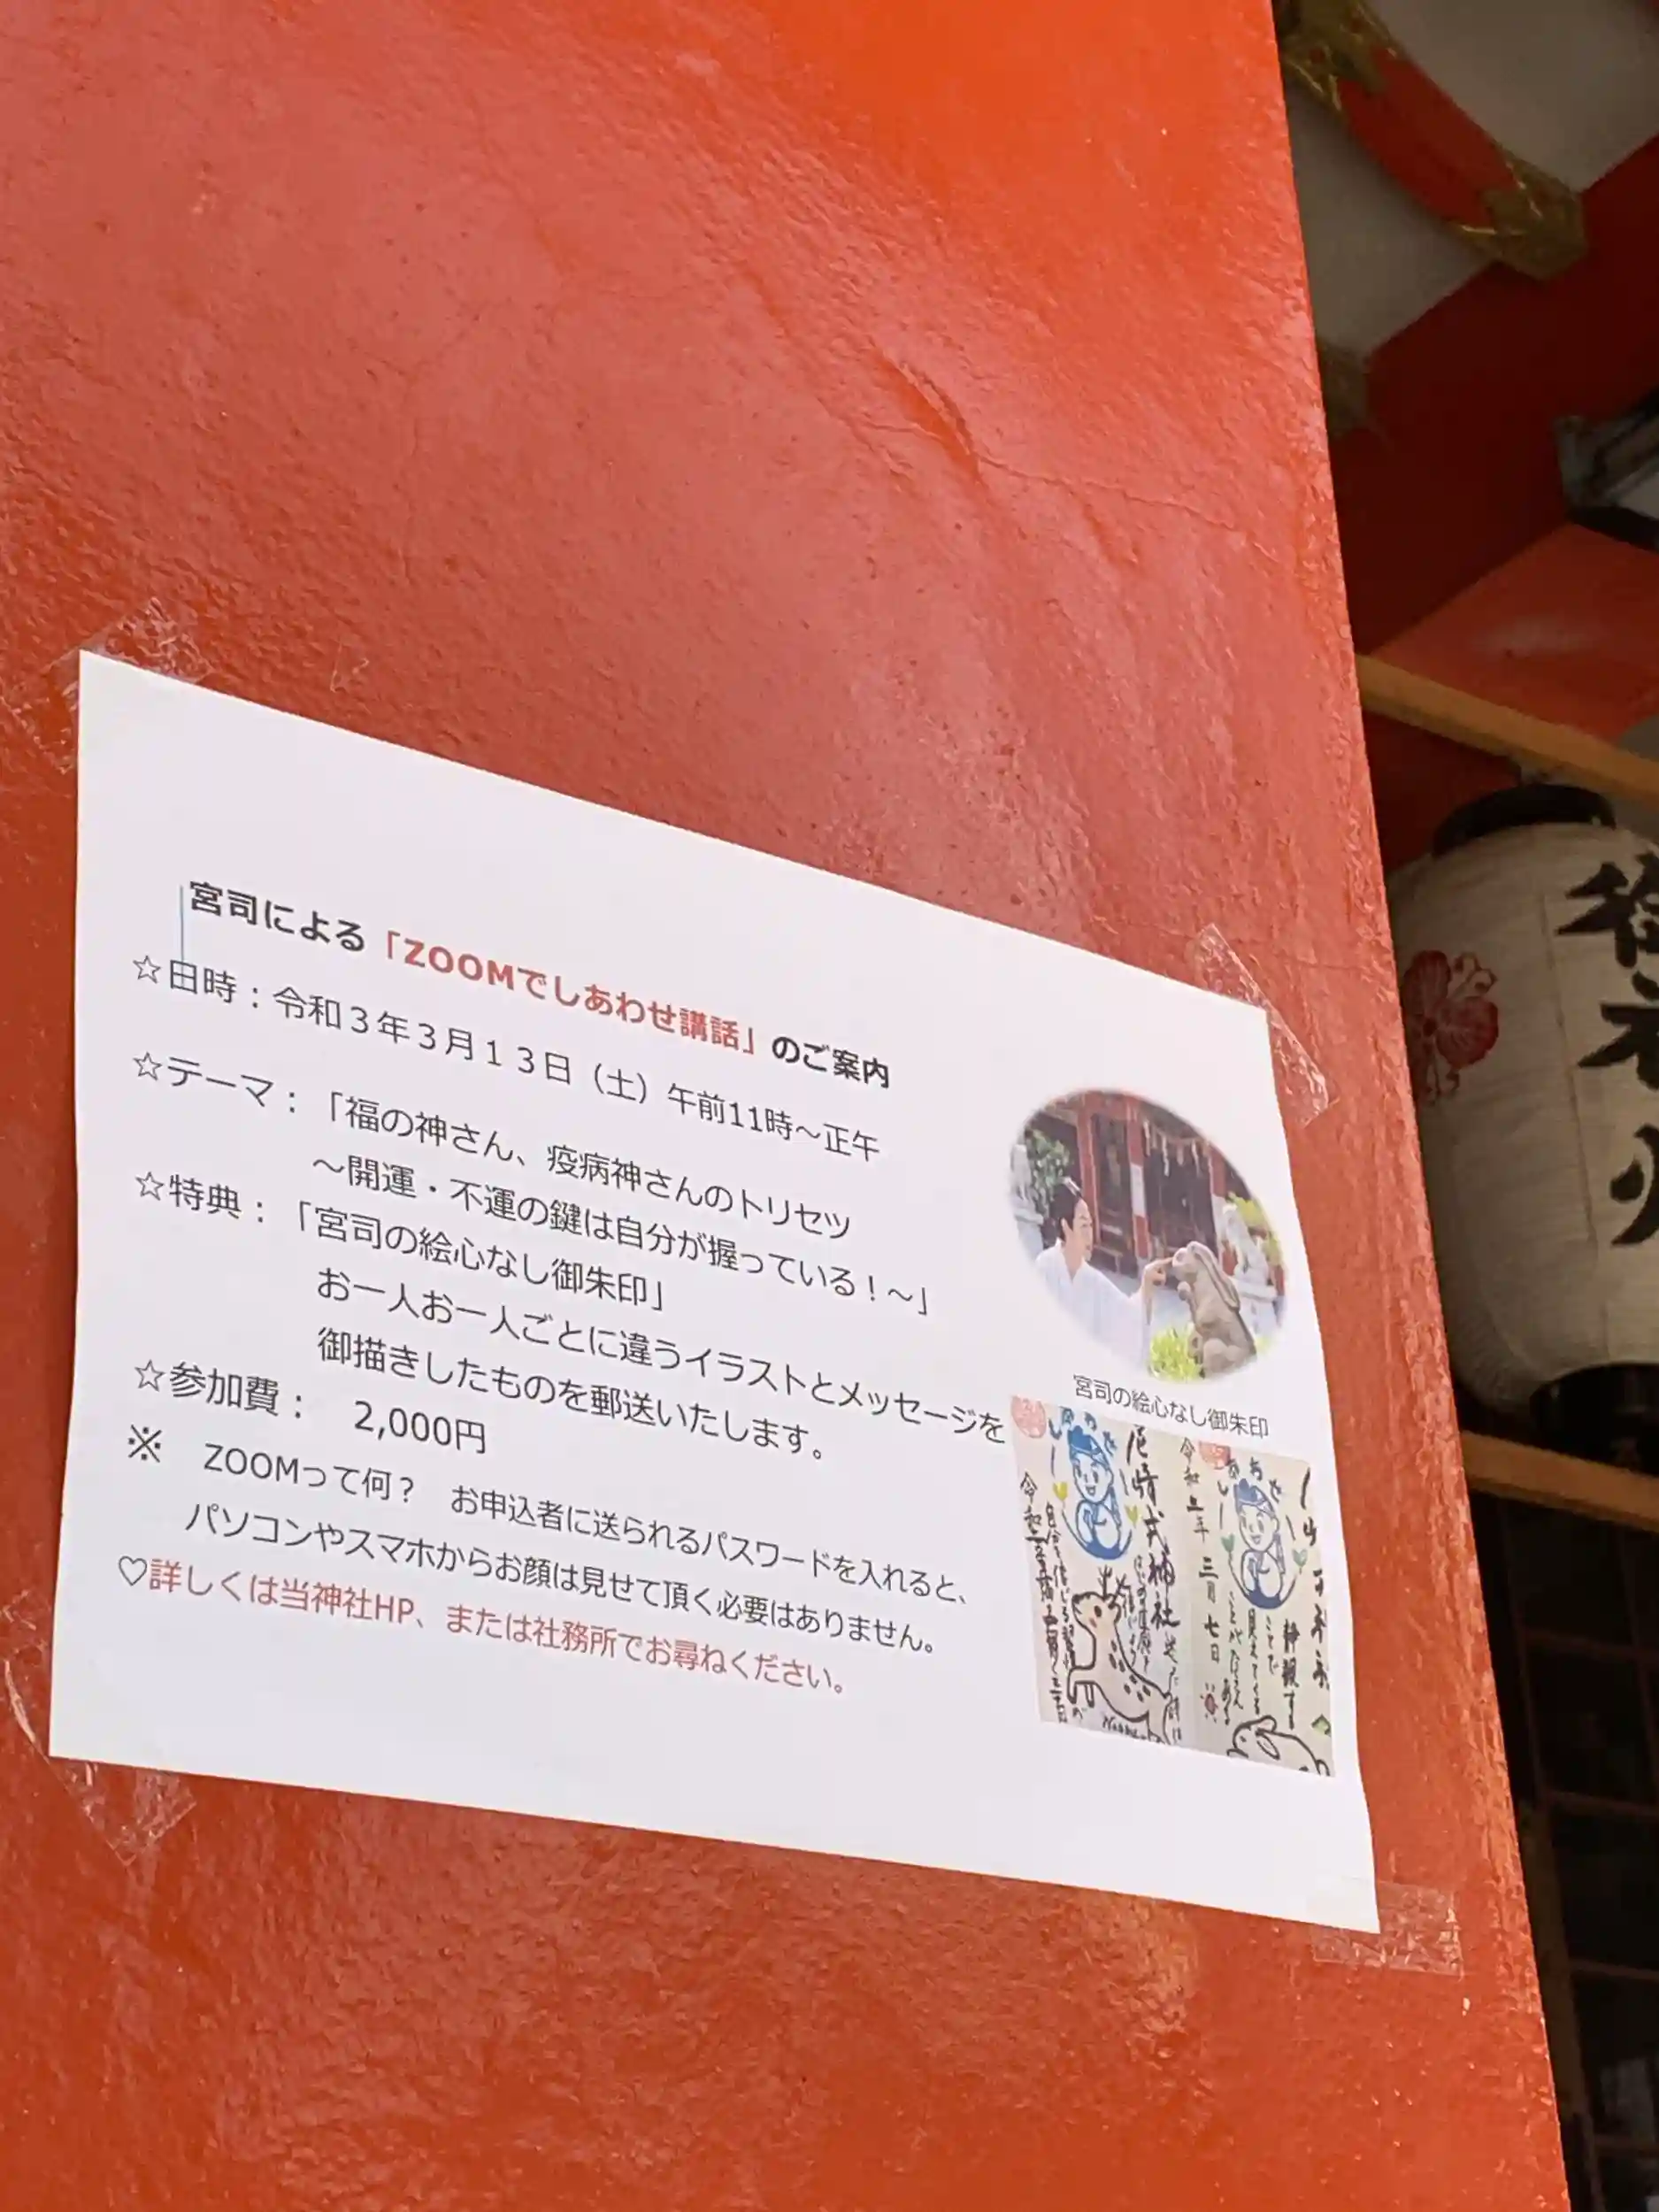 宮司による「ZOOMでしあわせ講話」のご案内
☆日時：令和３年３月１３日（土）午前11時～正午
☆テーマ：「福の神さん、疫病神さんのトリセツ
～開運・不運の鍵は自分が握っている！～」
☆特典：「宮司の絵心なし御朱印」
お一人お一人ごとに違うイラストとメッセージを
御描きしたものを郵送いたします。
☆参加費： 2,000円
※ ZOOMって何？ お申込者に送られるパスワードを入れると、
パソコンやスマホからお顔は見せて頂く必要はありません。
♡詳しくは当神社HP、または社務所でお尋ねください。
宮司の絵心なし御朱印
尼崎えびす神社
令和三年 三月 七日